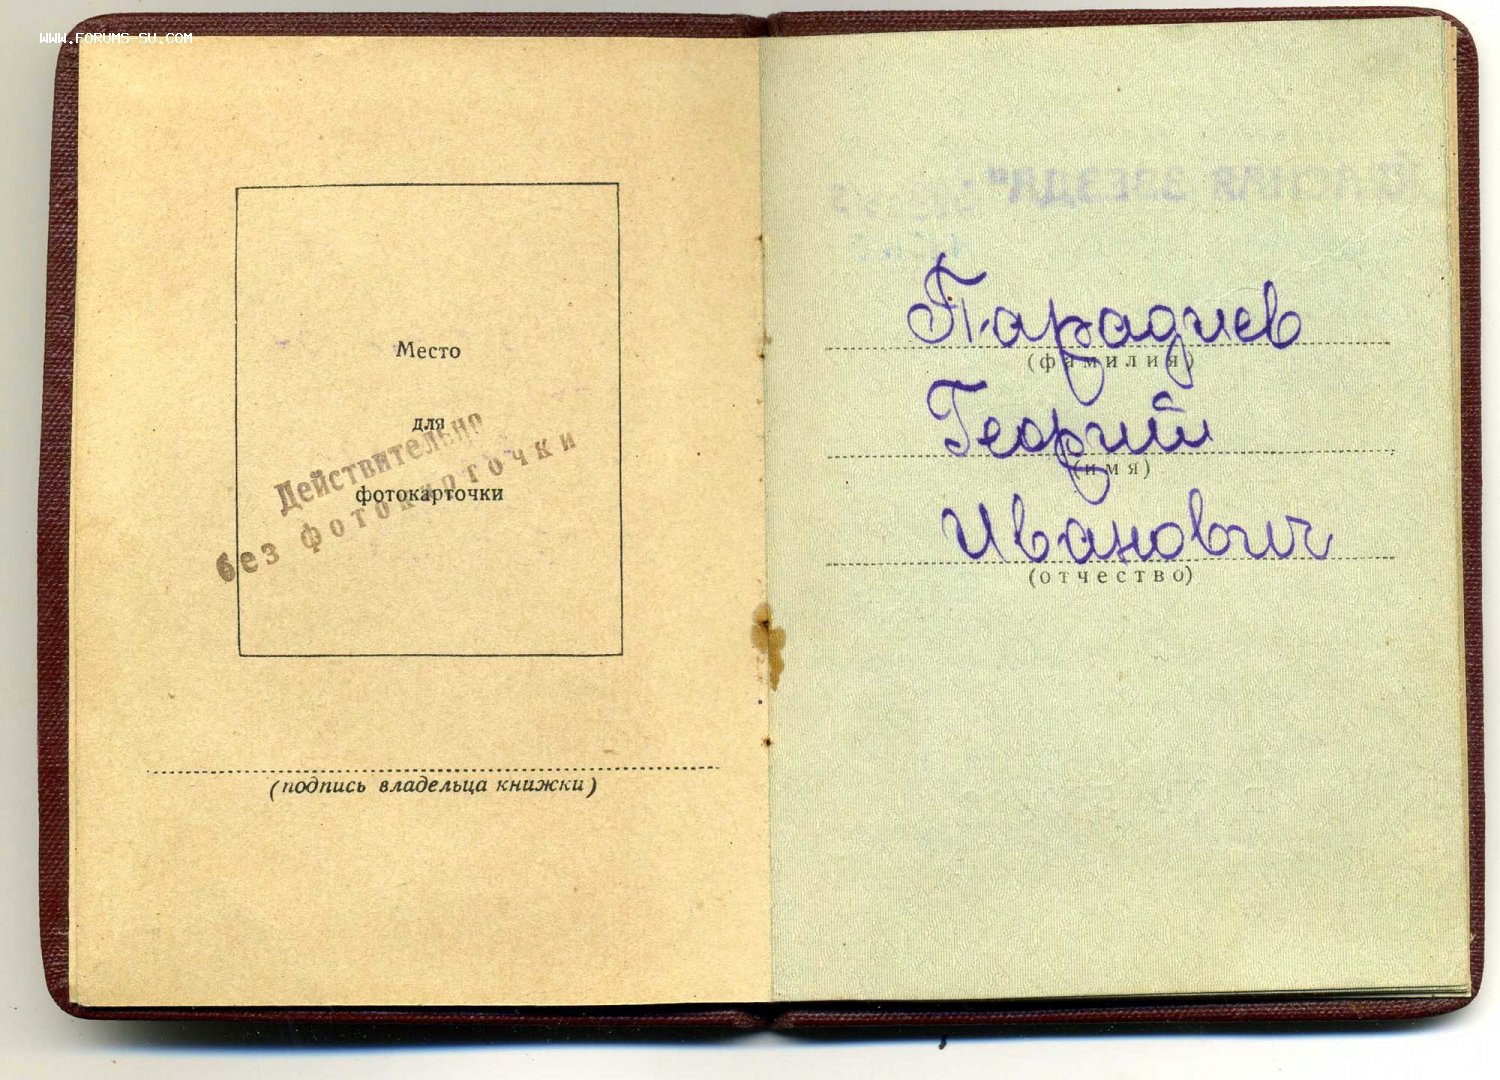 WWW.FORUMS-SU.COM
Место
для
фотокарточки
Действительно
без фотокарточки
(подпись владельца книжки)
Парадиев
(фамилия)
Георгий
(имя)
Иванович
(отчество)